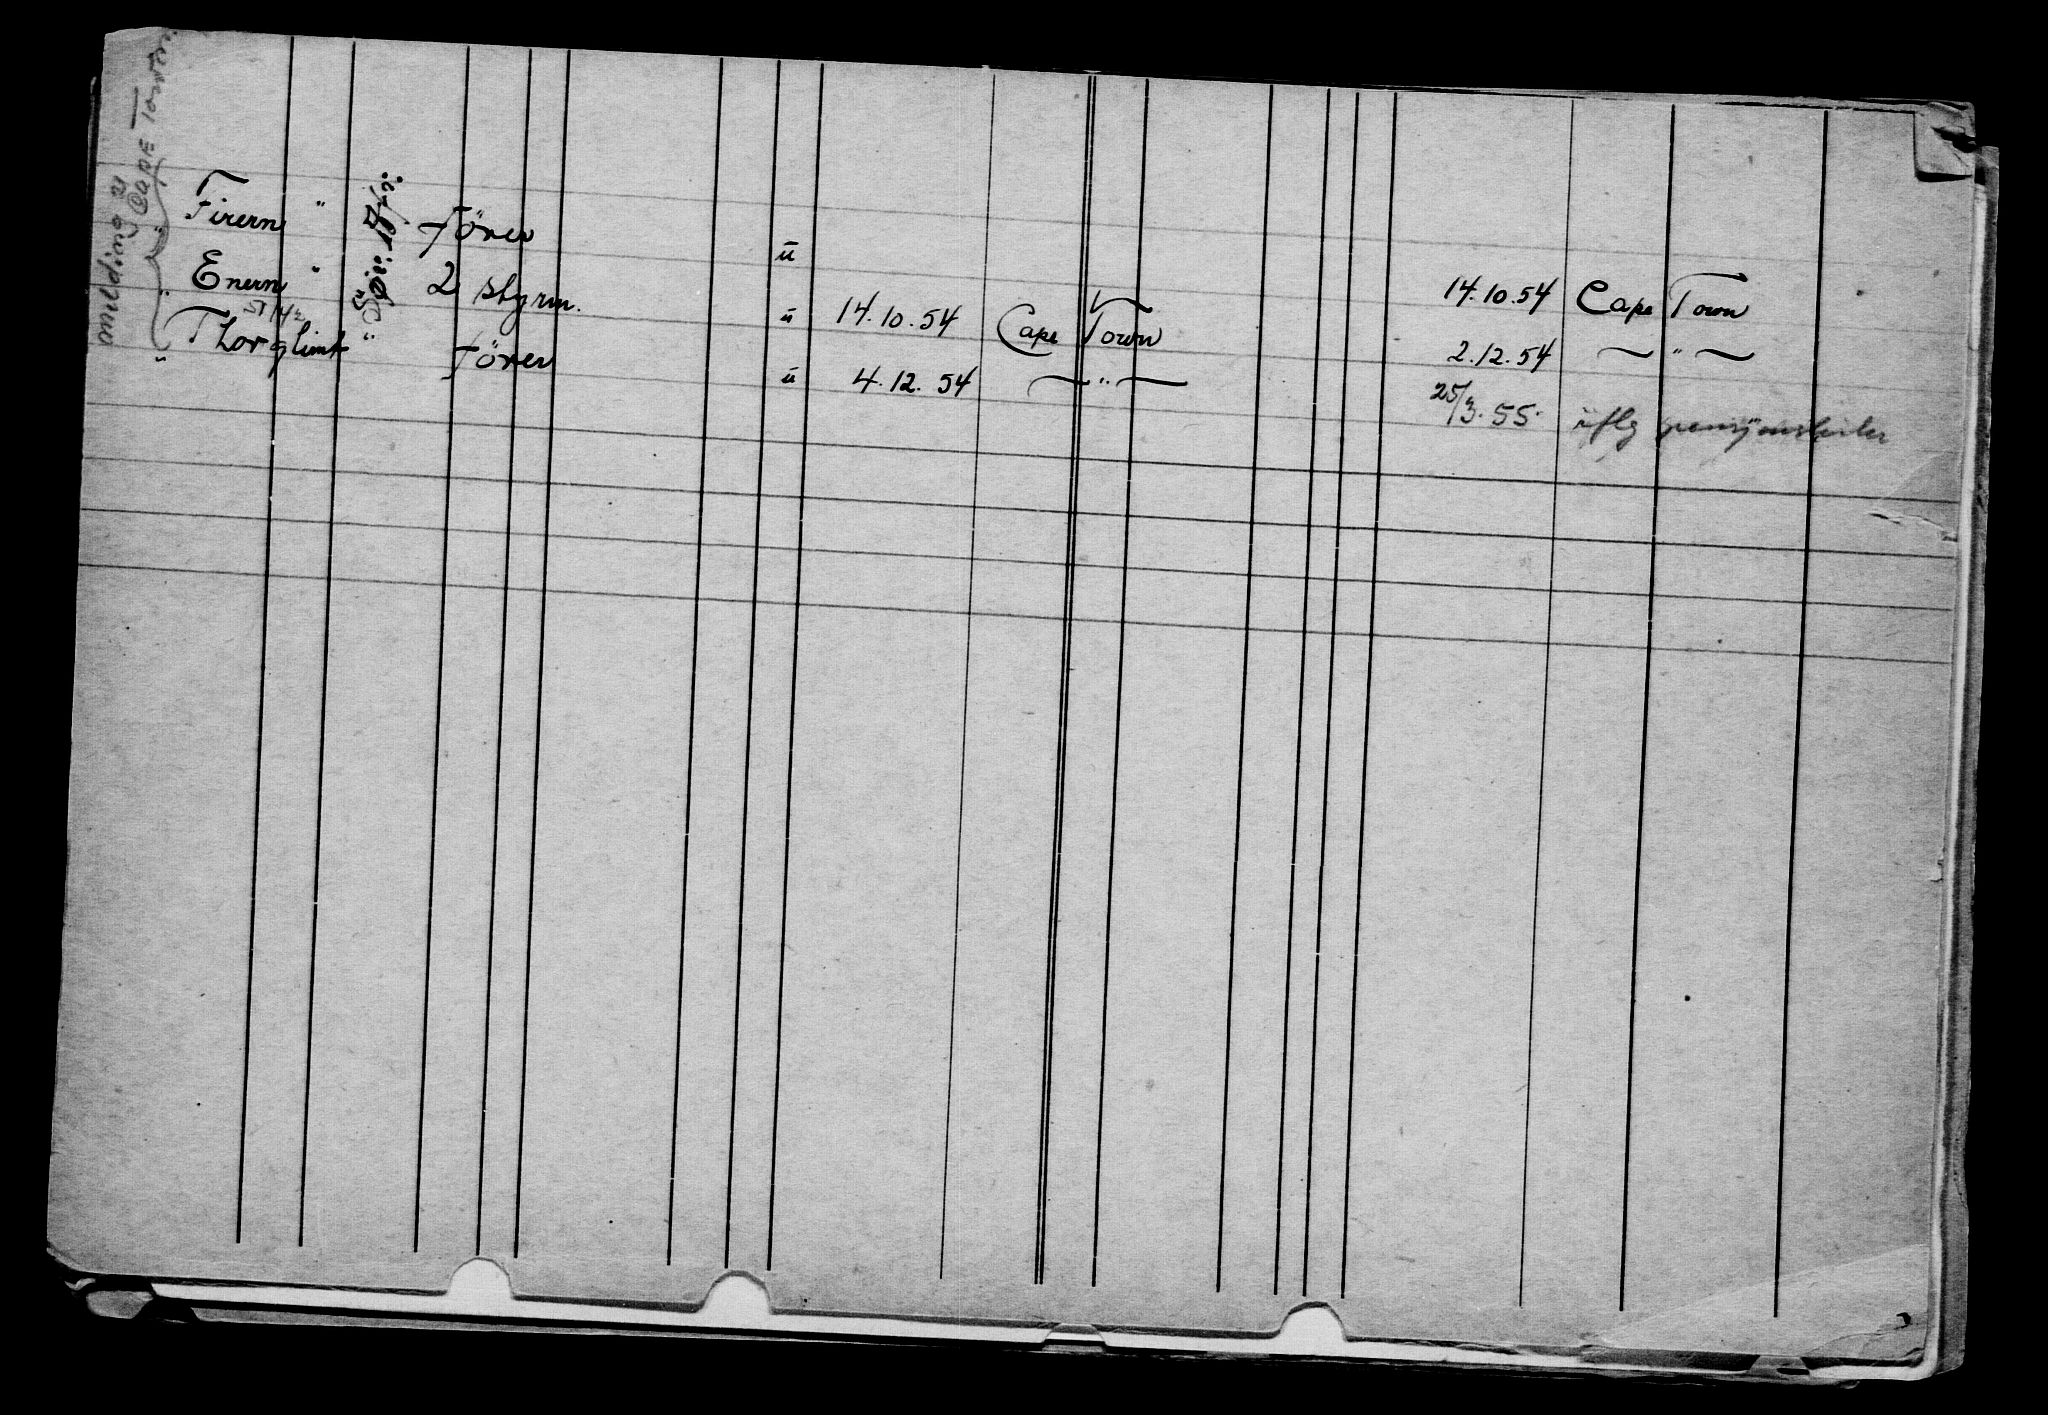 melding 21 Cape Town
Firern " Fører ū 14.10.54 Cape Town
" Enern " 2 styrm. ū 14.10.54 Cape Town 2.12.54 — " —
" Thorglimt " Fører ū 4.12.54 — " — 25/3.55 iflg